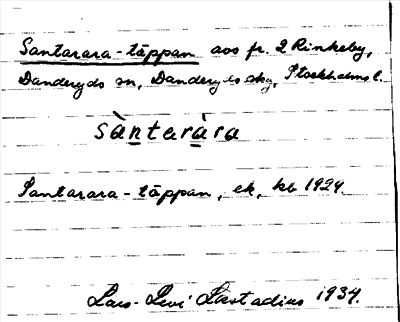 Santarara-täppan avs fr. 2 Rinkeby,
Danderyds sn, Danderyds skg, Stockholms l.
sàntarára
Santarara-täppan, ek, kb 1929.
Lars-Levi Læstadius 1934.